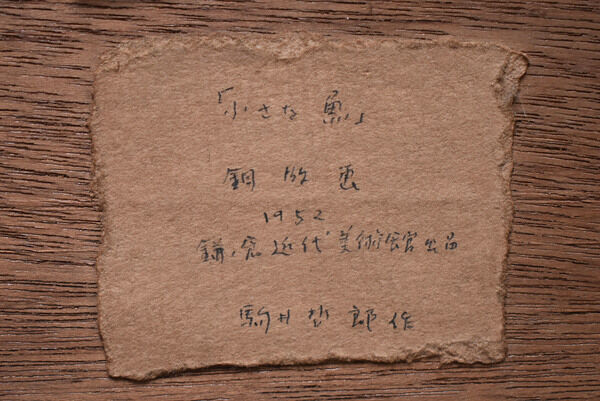 「小さな魚」
銅版画
1952
鎌倉近代美術館出品
駒井哲郎作